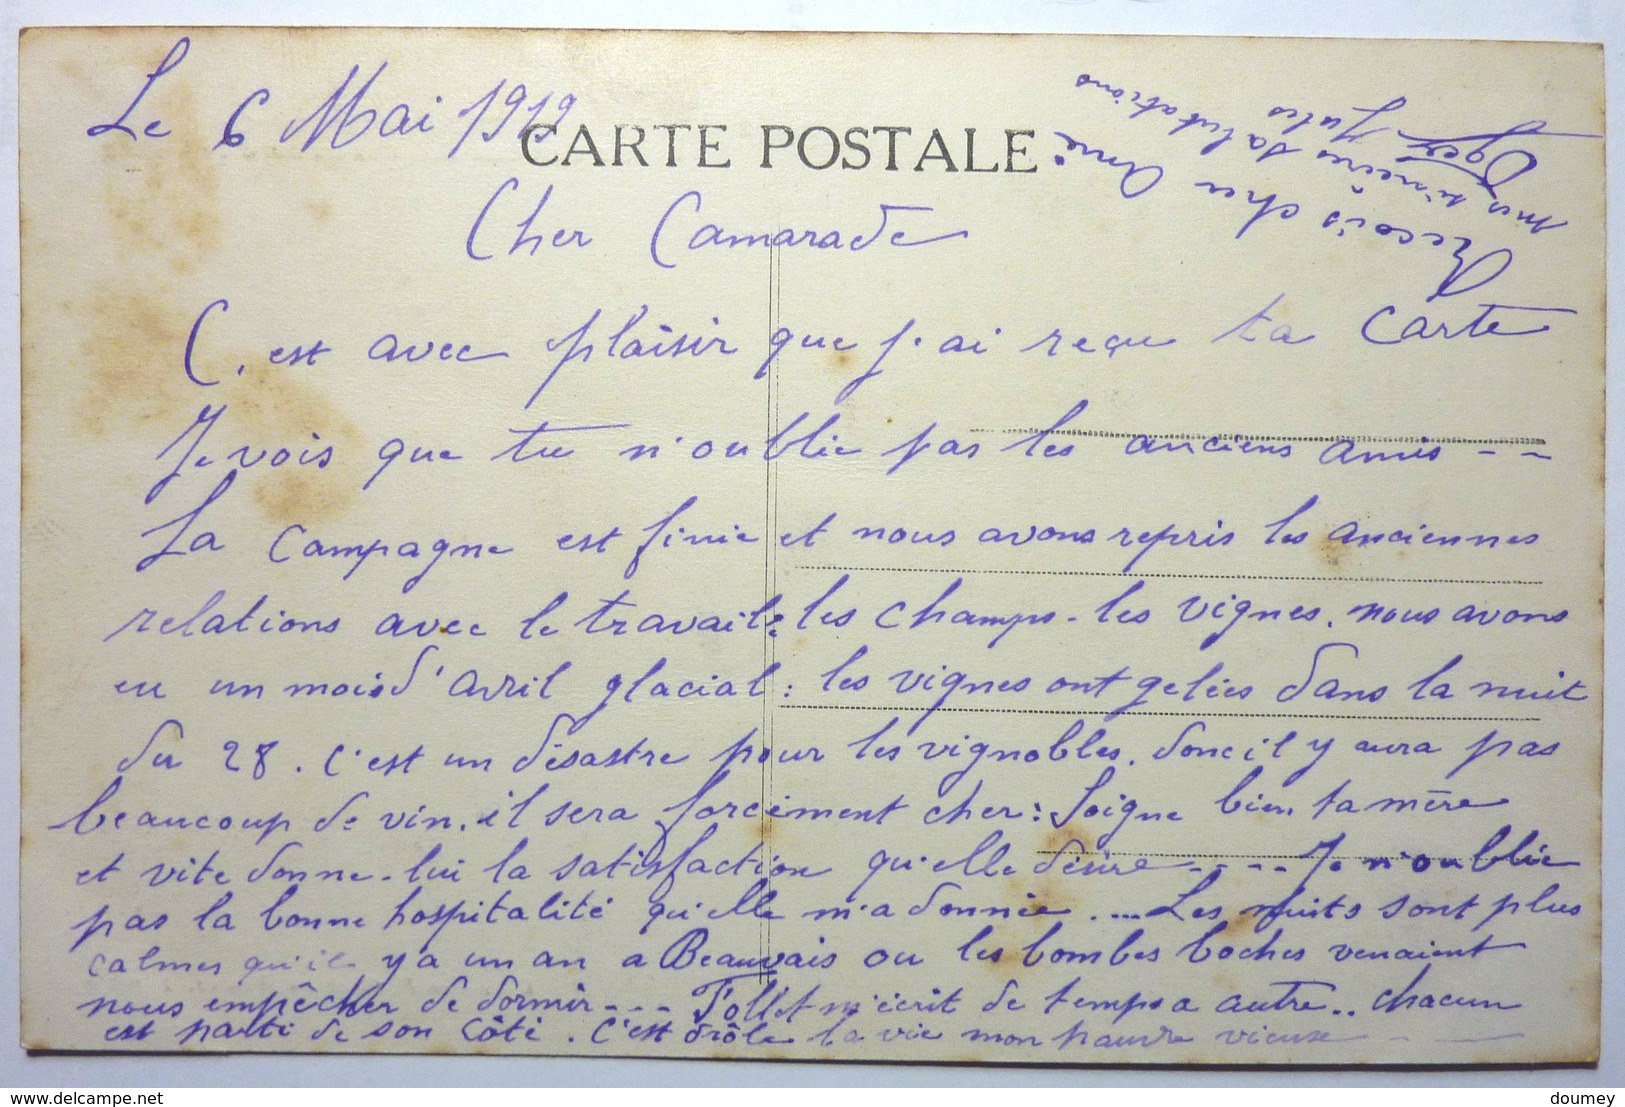 Le 6 Mai 1919
CARTE POSTALE
Cher Camarade
C'est avec plaisir que j'ai reçu ta Carte
Je vois que tu n'oublie pas les anciens amis - -
La Campagne est finie et nous avons repris les anciennes
relations avec le travail: les champs - les vignes. nous avons
eu un mois d'avril glacial: les vignes ont gelées dans la nuit
du 28. c'est un désastre pour les vignobles. donc il y aura pas
beaucoup de vin. il sera forcément cher: Soigne bien ta mère
et vite donne-lui la satisfaction qu'elle désire - - - - Je n'oublie
pas la bonne hospitalité qu'elle m'a donnée..... Les nuits sont plus
calmes qu'il y a un an a Beauvais ou les bombes boches venaient
nous empêcher de dormir - - - Tollet m'écrit de temps a autre.. chacun
est parti de son côté. C'est drôle la vie mon pauvre vieux - -
Recois cher Ami
mes sincères salutations
Jules
delcampe.net
doumey